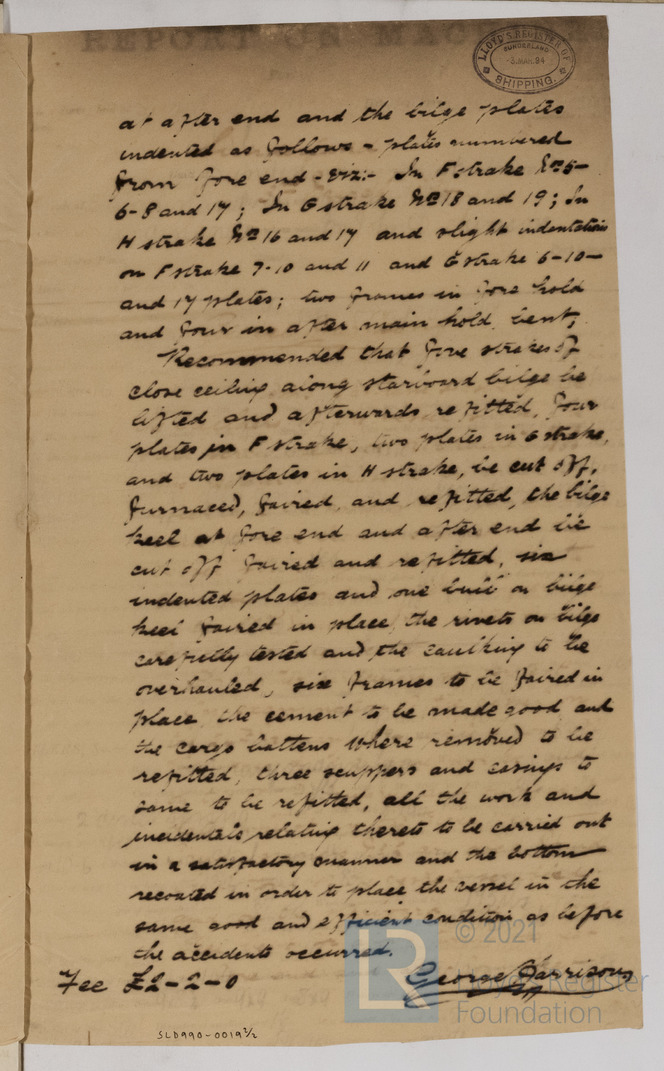 REPORT ON MAC
LLOYD'S REGISTER OF
SUNDERLAND
-3.MAR.94
SHIPPING.
at after end and the bilge plates
indented as follows - plates numbered
from fore end - viz:- In F strake Nos 5-
6-8 and 17; In G strake Nos 18 and 19; In
H strake Nos 16 and 17 and slight indentations
on F strake 7-10 and 11 and G strake 6-10-
and 17 plates; two frames in fore hold
and four in after main hold bent;
Recommended that five strakes of
close ceiling along starboard bilge be
lifted and afterwards refitted, four
plates in F strake, two plates in G strake,
and two plates in H strake, be cut off,
furnaced, faired, and refitted, the bilge
keel at fore end and after end be
cut off faired and refitted, six
indented plates and one butt on bilge
keel faired in place, the rivets on bilge
carefully tested and the caulking to be
overhauled, six frames to be faired in
place the cement to be made good and
the cargo battens where removed to be
refitted, three scuppers and casings to
same to be refitted, all the work and
incidentals relating thereto to be carried out
in a satisfactory manner and the bottom
recoated in order to place the vessel in the
same good and efficient condition as before
the accidents occurred.
Fee £2-2-0
George Garrison
LR
© 2021
Lloyd's Register
Foundation
SLD990-0019 2/2